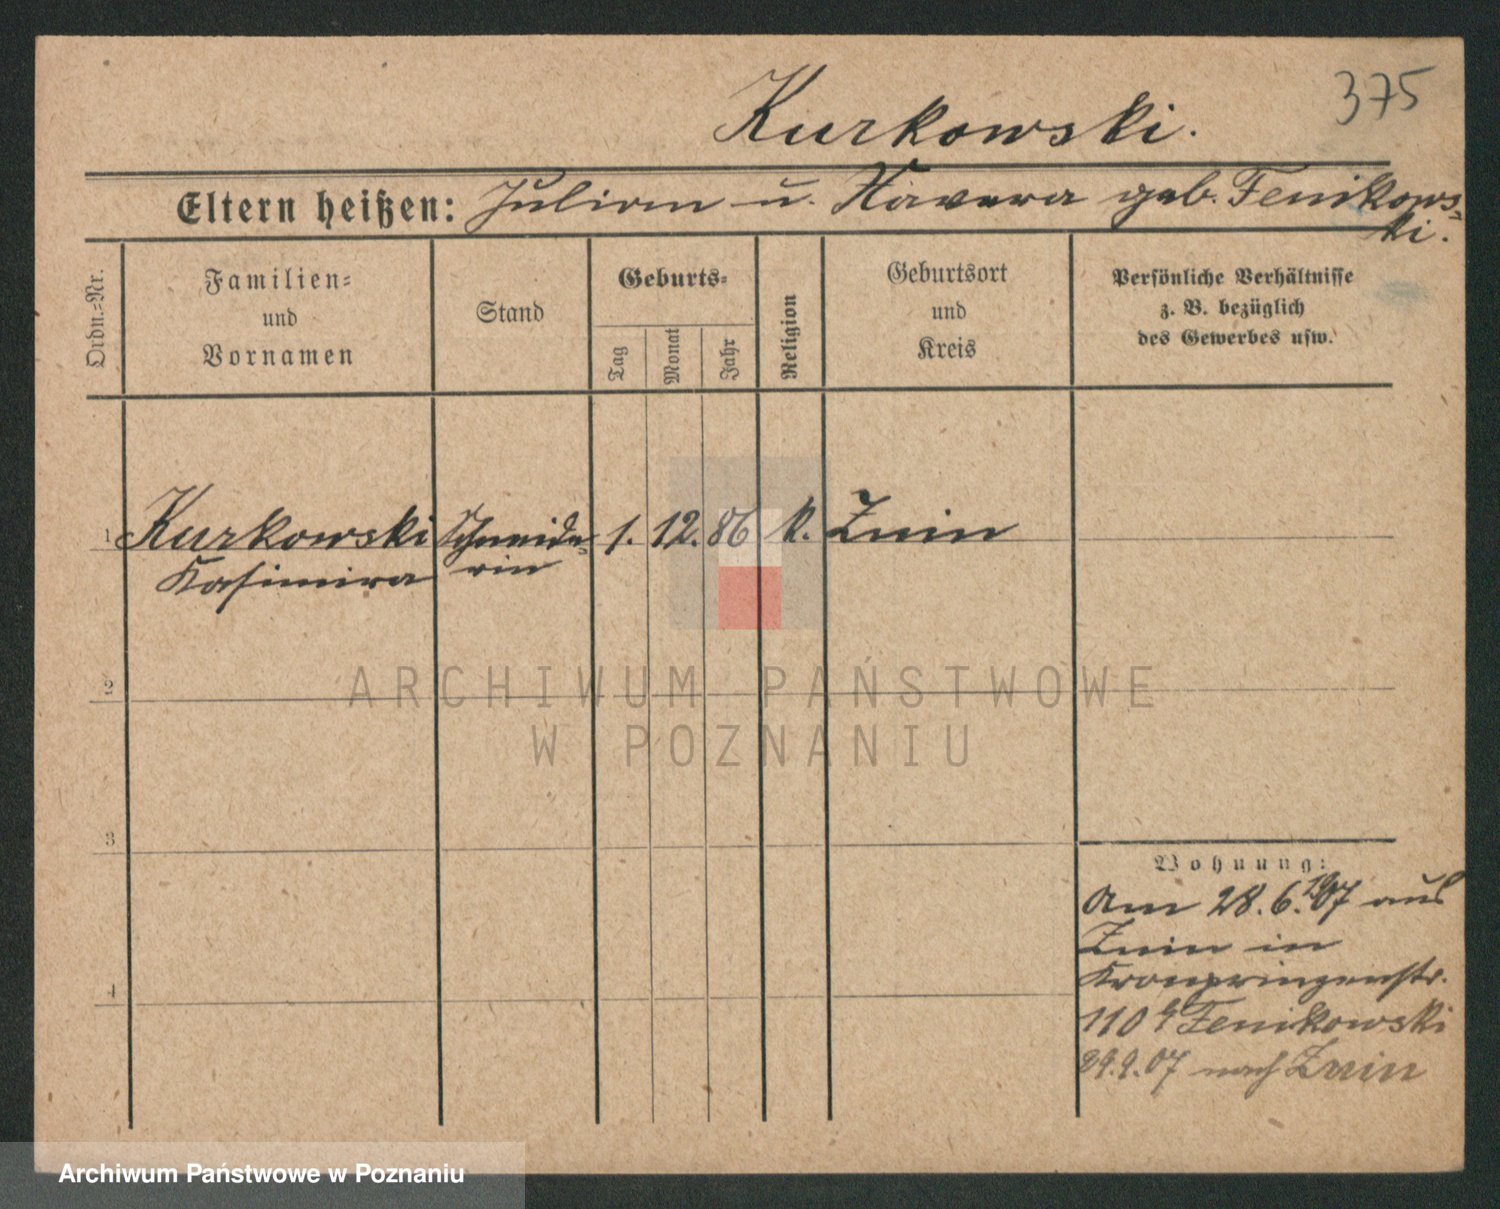 375
Kurkowski.
Eltern heißen: Julian u. Xawera geb. Fenikows-
ki.
Ordn.-Nr.
Familien-
und
Vornamen
Stand
Geburts-
Tag
Monat
Jahr
Religion
Geburtsort
und
Kreis
Persönliche Verhältnisse
z. B. bezüglich
des Gewerbes usw.
1 Kurkowski Schneide- 1. 12. 86 k. Znin
Kasimira rin
2
3
4
Wohnung:
Am 28.6.1907 aus
Znin in
Kronprinzenstr.
110 Fenikowski
29.9.07 nach Znin
ARCHIWUM PAŃSTWOWE
W POZNANIU
Archiwum Państwowe w Poznaniu